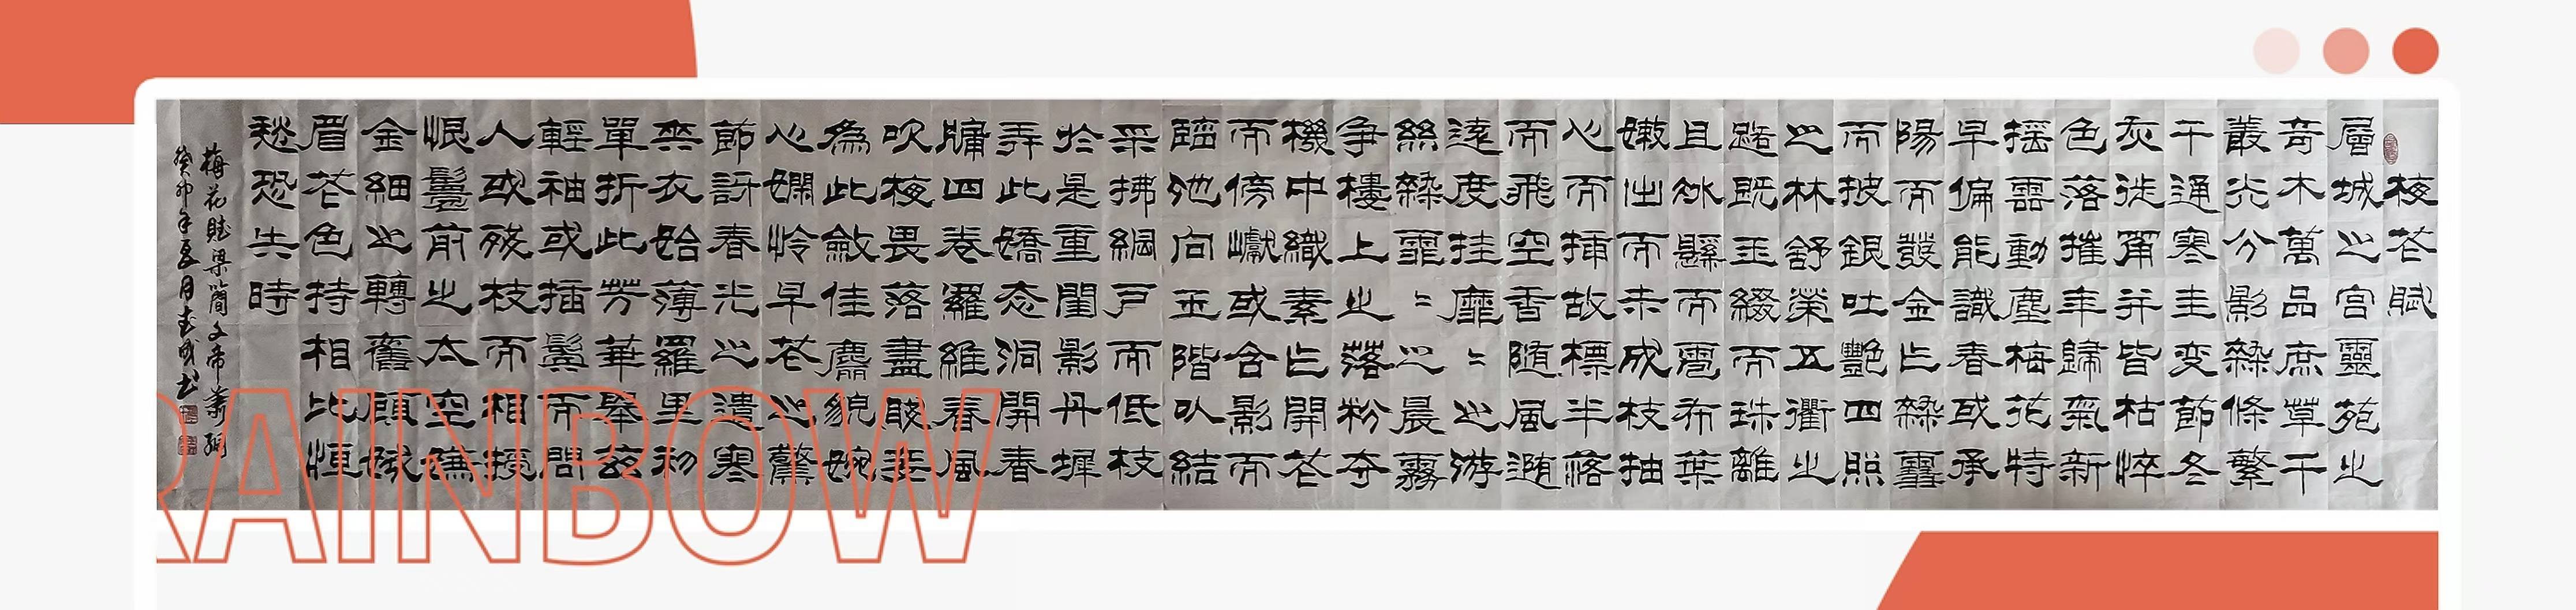 梅花賦
層城之宮靈苑之
奇木萬品庶草千
叢光分影雜條繁
干通寒圭变節冬
灰徙筩并皆枯悴
色落摧年歸氣新
摇雲動塵梅花特
早偏能識春或承
陽而發金乍雜雪
而披銀吐豔四照
之林舒榮五衢之
路既玉綴而珠離
且冰懸而雹布葉
嫩出而未成枝抽
心而插故標半落
而飛空香随風
遠度挂靡〻之游
絲雜霏〻之晨霧
争樓上之落粉奪
機中織素乍開花
而傍巘或含影而
臨池向玉階以結
采拂網戶而低枝
於是重閨影丹墀
弄此嬌态洞開春
牖四卷羅維春風
吹梅畏落盡賤妾
為此斂佳貌婉
心嫻怜早花之驚
節訝春光之遺寒
夾衣始薄羅里初
單折此芳華舉兹
輕袖或插鬢而問
人或殘枝而相授
恨鬟前之太空嫌
金細之轉舊顧
眉花色持相比恒
愁恐失時
梅花賦梁簡文帝蕭綱
癸卯年夏月志成书
RAINBOW